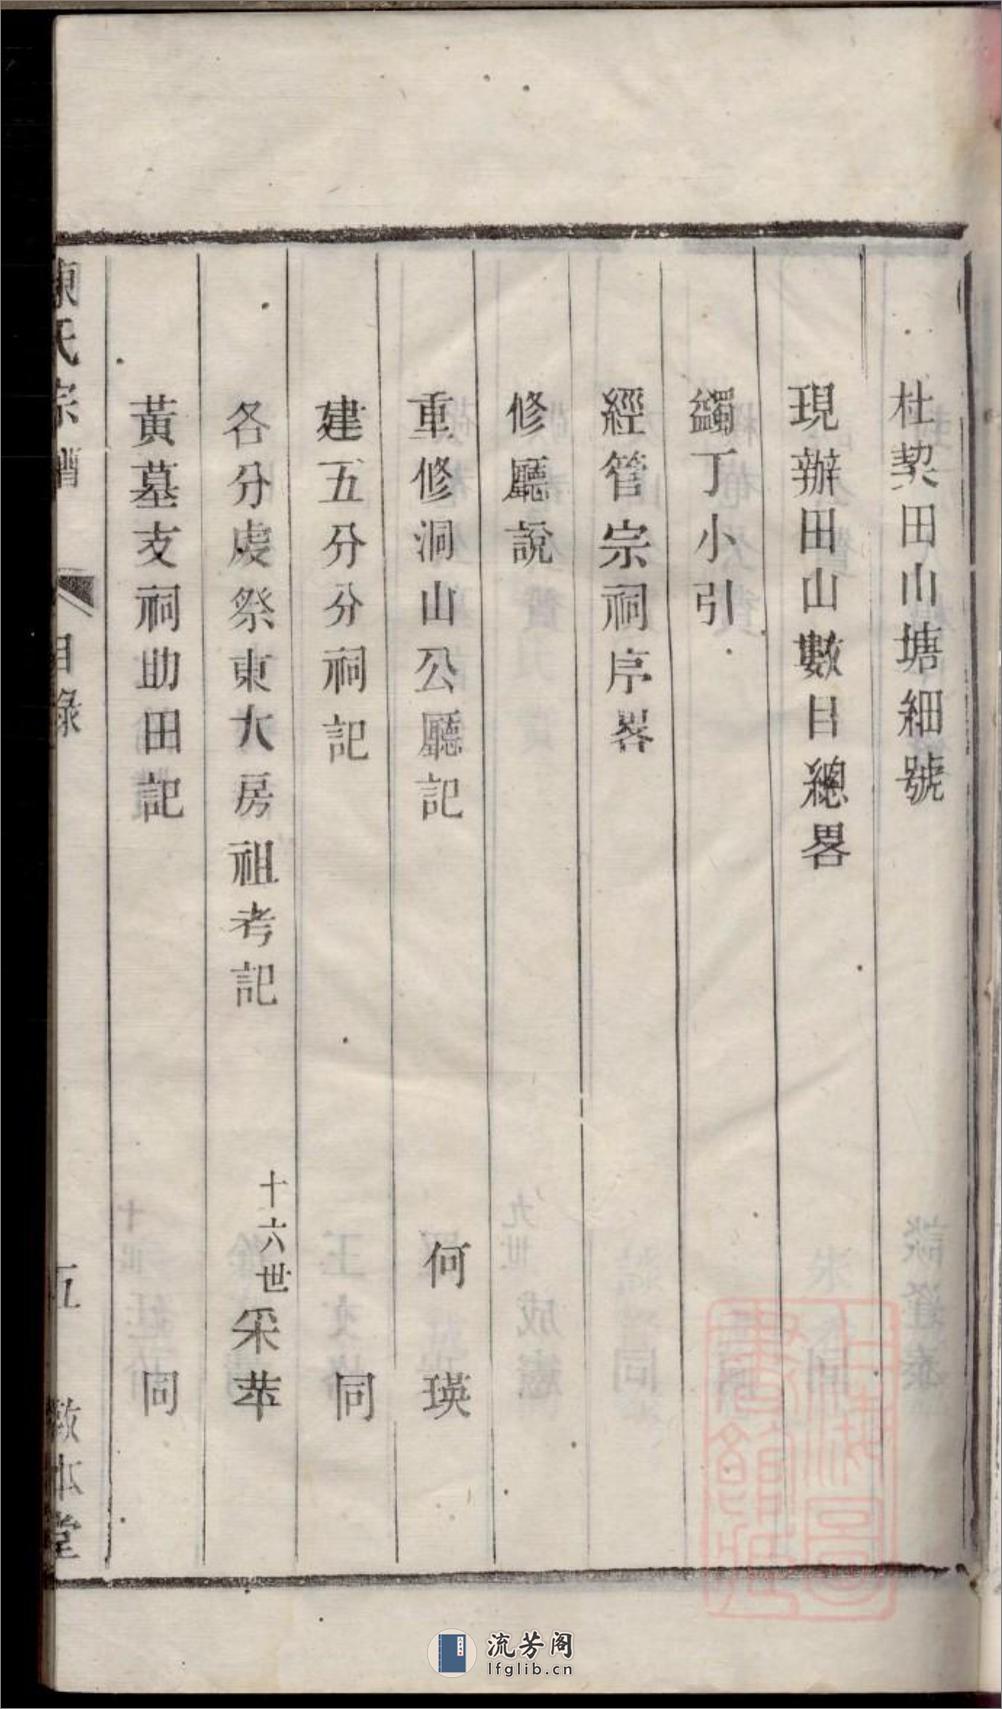 杜契田山塘細號
現辦田山數目總畧
蠲丁小引
經管宗祠序畧
修廳說
重修洞山公廳記 何瑛
建五分分祠記 同
各分虔祭東大房祖考記 十六世采苹
黃墓支祠助田記 同
陳氏宗譜 目錄 五 敦本堂
上海圖書館藏
流芳阁
lfglib.cn